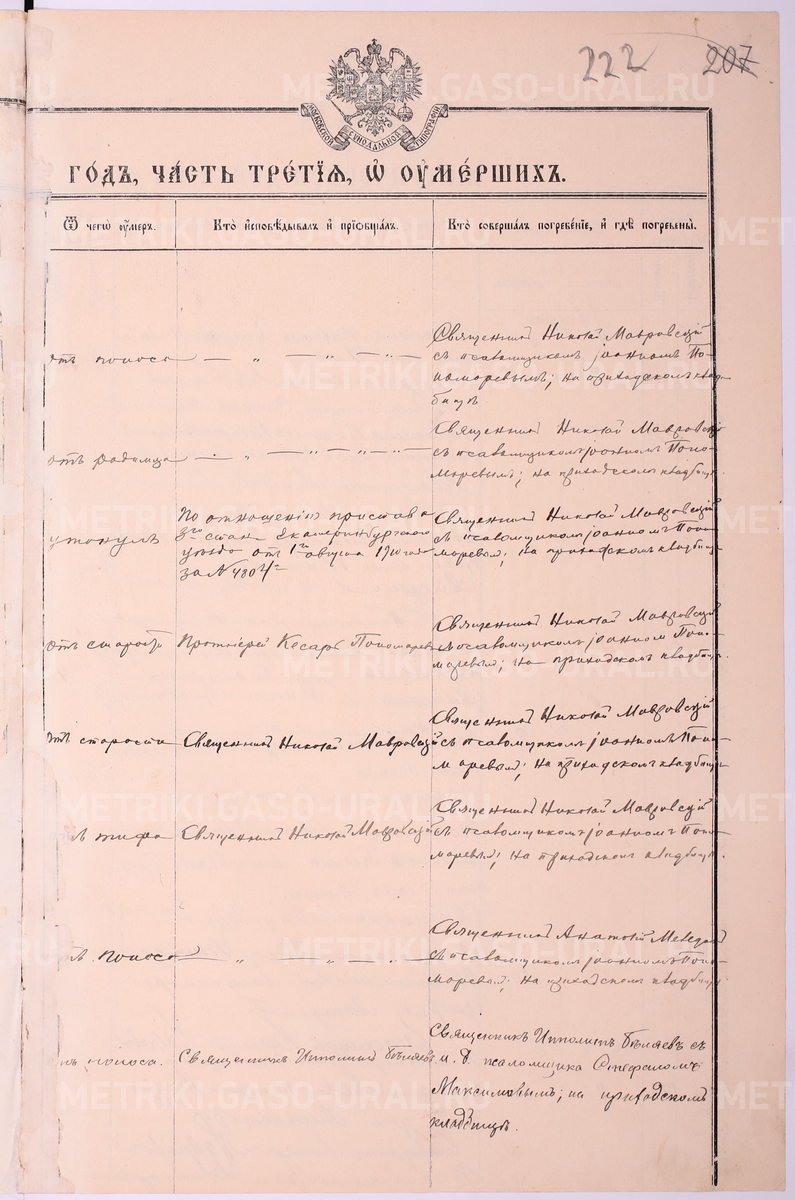 222 207
МОСКОВСКОЙ СѴНОДАЛЬНОЙ ТИПОГРАФІИ
ГО́ДЪ, ЧА́СТЬ ТРЕ́ТІЯ, Ѡ҆ ОУ҆МЕ́РШИХЪ.
Ѿ чегѡ̀ оу҆́меръ.
Кто̀ и҆сповѣ́дывалъ и҆ прїѡбща́лъ.
Кто̀ соверша́лъ погребе́нїе, и҆ гдѣ̀ погребены̀.
отъ поноса — „ — „ — „ —
Священникъ Николай Мавровскій
съ псаломщикомъ Іоанномъ По-
номаревымъ; на приходскомъ клад-
бищѣ
отъ родимца — „ — „ — „ —
Священникъ Николай Мавровскій
съ псаломщикомъ Іоанномъ Поно-
маревымъ; на приходскомъ кладбищѣ.
утонулъ
По отношенію пристава
3го стана Екатеринбургскаго
уѣзда отъ 1го августа 1910 года
за №
Священникъ Николай Мавровскій
съ псаломщикомъ Іоанномъ Поно-
маревымъ; на приходскомъ кладбищѣ
отъ старости
Протоіерей Кесарь Пономаревъ
Священникъ Николай Мавровскій
съ псаломщикомъ Іоанномъ Поно-
маревымъ; на приходскомъ кладбищѣ.
отъ старости
Священникъ Николай Мавровскій
Священникъ Николай Мавровскій
съ псаломщикомъ Іоанномъ Поно-
маревымъ; на приходскомъ кладбищѣ
ъ тифа
Священникъ Николай Мавровскій
Священникъ Николай Мавровскій
съ псаломщикомъ Іоанномъ Поно-
маревымъ; на приходскомъ кладбищѣ.
тъ поноса — „ — „ — „ —
Священникъ Анатолій
съ псаломщикомъ Іоанномъ Поно-
маревымъ; на приходскомъ кладбищѣ
тъ поноса.
Священникъ Ипполитъ Бѣляевъ
Священникъ Ипполитъ Бѣляевъ съ
и. д. псаломщика Стефаномъ
Максимовымъ; на приходскомъ
кладбищѣ.
METRIKI.GASO-URAL.RU